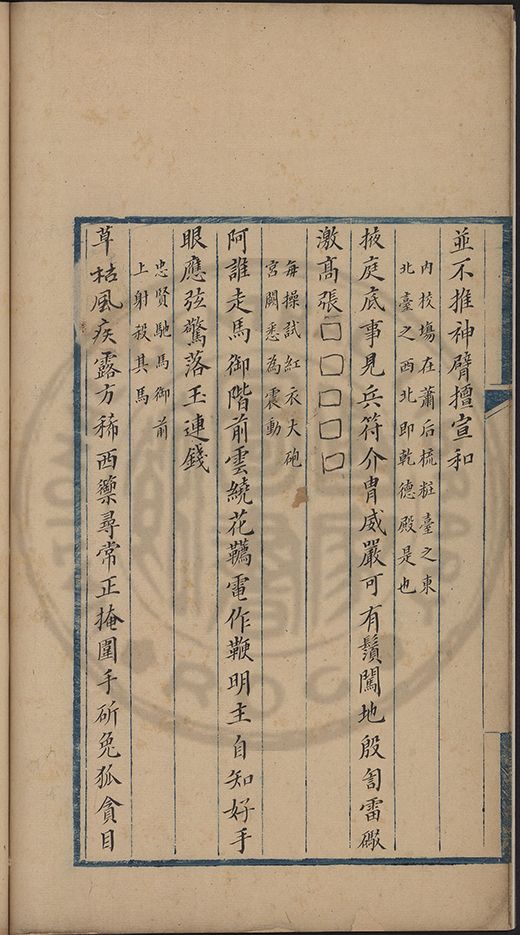 並不推神臂擅宣和
內校場在蕭后梳粧臺之東
北臺之西北即乾德殿是也
掖庭底事見兵符介胄威嚴可有鬚闖地殷訇雷礮
激髙張□□□□□
每操試紅衣大砲
宮闕悉為震動
阿誰走馬御階前雲繞花韉電作鞭明主自知好手
眼應弦驚落玉連錢
忠賢馳馬御前
上射殺其馬
草枯風疾露方稀西蘌尋常正掩圍手斫兔狐貪目